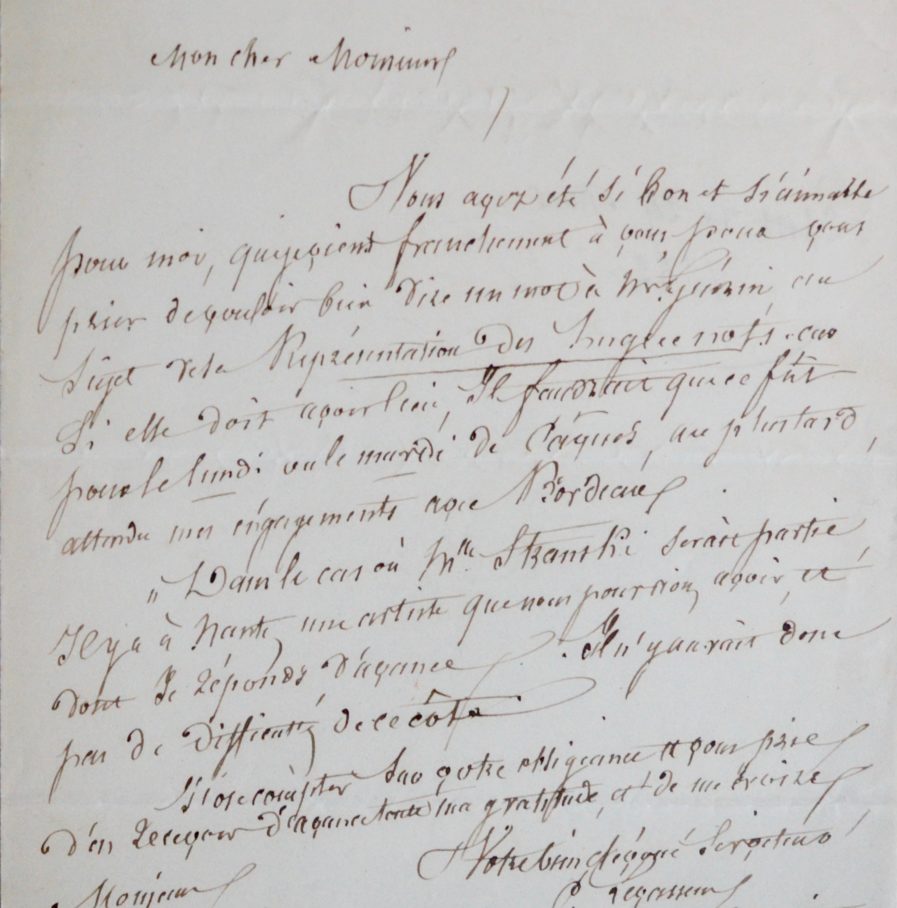 Mon cher Monsieur
Vous avez été si bon et si aimable
pour moi, que je viens franchement à vous pour vous
prier de vouloir bien dire un mot à Mr. Guérin, au
Sujet de la Représentation des huguenots. car
Si elle doit avoir lieu, Il faudrait que ce fût
pour le lundi ou le mardi de Pâques, au plus tard,
attendu mes engagements avec Bordeaux.
"Dans le cas où Mlle. Skanski serait partie
Il y a à Nantes une artiste que nous pourrions avoir, et
dont Je réponds d'avance. Il n'y aurait donc
pas de difficultés de ce côté.
J'ose compter sur votre obligeance et vous prie
d'en recevoir d'avance toute ma gratitude, et de me croire
Votre bien dévoué Serviteur
Monsieur